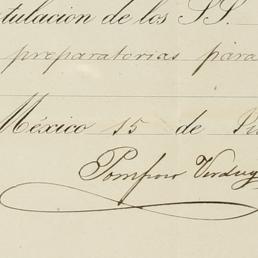 tulacion de los SS.
preparatorias para
México 15 de
Pomposo Verdug